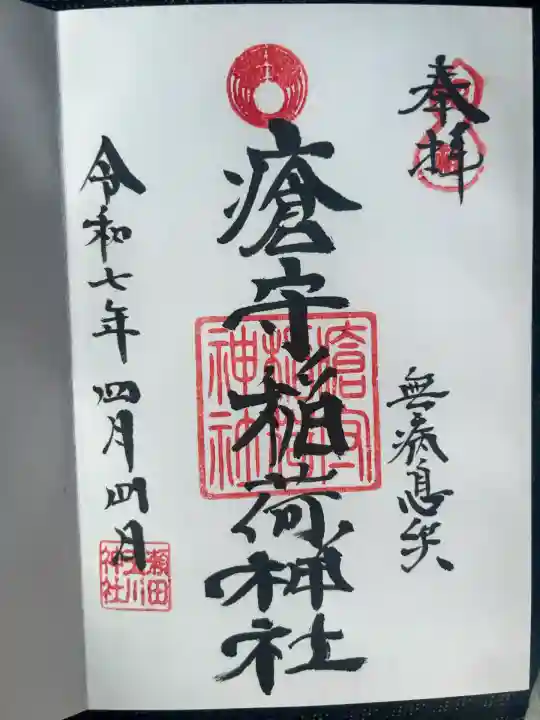 奉拝
無病息災
瘡守稲荷神社
令和七年四月四日
瀬田
玉川
神社